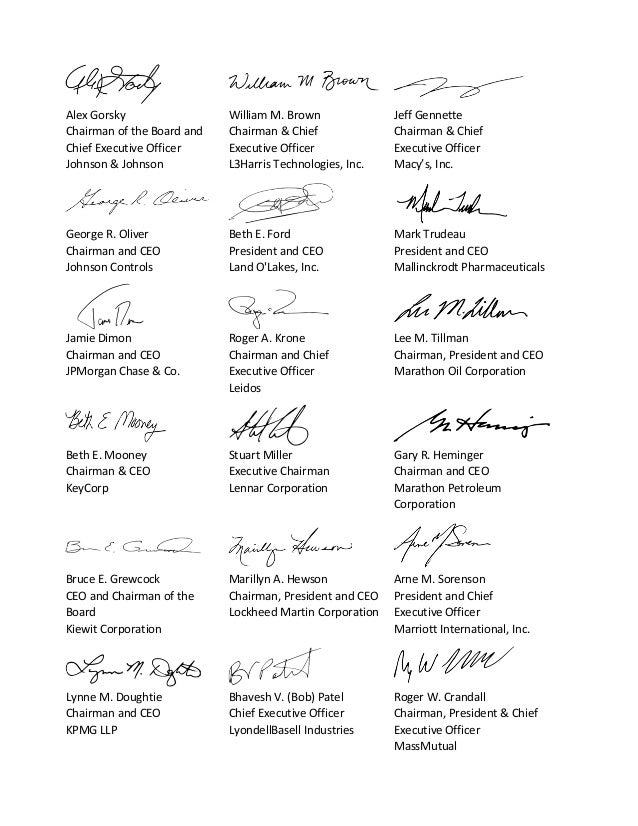 Alex Gorsky
Chairman of the Board and
Chief Executive Officer
Johnson & Johnson
William M Brown
William M. Brown
Chairman & Chief
Executive Officer
L3Harris Technologies, Inc.
Jeff Gennette
Chairman & Chief
Executive Officer
Macy's, Inc.
George R. Oliver
George R. Oliver
Chairman and CEO
Johnson Controls
Beth E. Ford
President and CEO
Land O'Lakes, Inc.
Mark Trudeau
President and CEO
Mallinckrodt Pharmaceuticals
Jamie Dimon
Chairman and CEO
JPMorgan Chase & Co.
Roger A. Krone
Chairman and Chief
Executive Officer
Leidos
Lee M. Tillman
Lee M. Tillman
Chairman, President and CEO
Marathon Oil Corporation
Beth E Mooney
Beth E. Mooney
Chairman & CEO
KeyCorp
Stuart Miller
Executive Chairman
Lennar Corporation
Gary R. Heminger
Chairman and CEO
Marathon Petroleum
Corporation
Bruce E. Grewcock
CEO and Chairman of the
Board
Kiewit Corporation
Marillyn Hewson
Marillyn A. Hewson
Chairman, President and CEO
Lockheed Martin Corporation
Arne M. Sorenson
President and Chief
Executive Officer
Marriott International, Inc.
Lynne M. Doughtie
Chairman and CEO
KPMG LLP
Bhavesh V. (Bob) Patel
Chief Executive Officer
LyondellBasell Industries
Roger W. Crandall
Chairman, President & Chief
Executive Officer
MassMutual